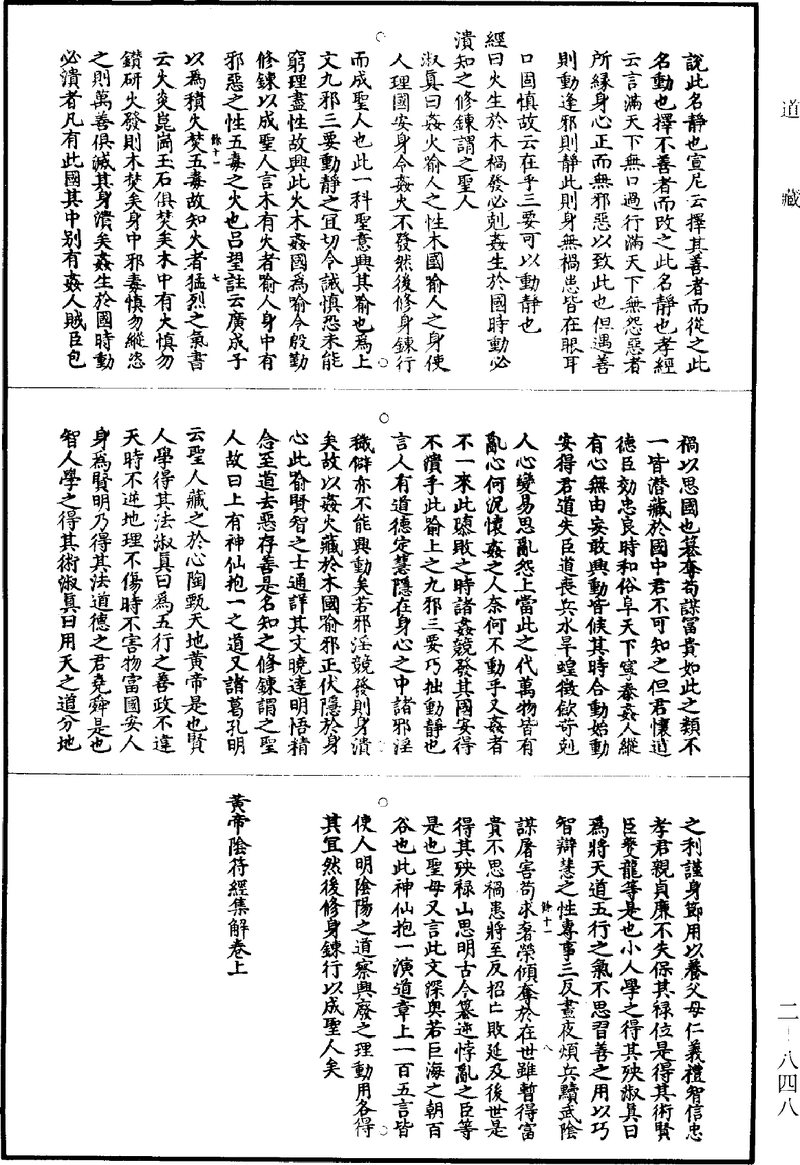 道藏
說此名靜也宣尼云擇其善者而從之此
名動也擇不善者而改之此名靜也孝經
云言滿天下無口過行滿天下無怨惡者
所緣身心正而無邪惡以致此也但遇善
則動逢邪則靜此則身無禍患皆在眼耳
口固慎故云在乎三要可以動靜也
經曰火生於木禍發必剋姦生於國時動必
潰知之修鍊謂之聖人
淑真曰姦火喻人之性木國喻人之身使
人理國安身令姦火不發然後修身鍊行
而成聖人也此一科聖意與其喻也為上
文九邪三要動靜之宜切令誡慎恐未能
窮理盡性故興此火木姦國為喻令殷勤
修鍊以成聖人言木有火者喻人身中有
邪惡之性五毒之火也呂望註云廣成子
餘十一
七
以為積火焚五毒故知火者猛烈之氣書
云火炎崑崗玉石俱焚矣木中有火慎勿
鑽研火發則木焚矣身中邪毒慎勿縱恣
之則萬善俱滅其身潰矣姦生於國時動
必潰者凡有此國其中別有姦人賊臣包
禍以思國也篡奪苟謀富貴如此之類不
一皆潛藏於國中君不可知之但君懷道
德臣効忠良時和俗阜天下寧泰姦人縱
有心無由妄敢興動皆候其時合動始動
安得君道失臣道喪兵水旱蝗徵歛苛剋
人心變易思亂怨上當此之代萬物皆有
亂心何況懷姦之人奈何不動乎又姦者
不一來此隳敗之時諸姦競發其國安得
不潰乎此喻上之九邪三要巧拙動靜也
言人有道德定慧隱在身心之中諸邪淫
穢僻亦不能興動矣若邪淫競發則身潰
矣故以姦火藏於木國喻邪正伏隱於身
心此喻賢智之士通詳其文曉達明悟精
念至道去惡存善是名知之修鍊謂之聖
人故曰上有神仙抱一之道又諸葛孔明
云聖人藏之於心陶甄天地黃帝是也賢
人學得其法淑真曰為五行之善政不違
天時不逆地理不傷時不害物富國安人
身為賢明乃得其法道德之君堯舜是也
智人學之得其術淑真曰用天之道分地
之利謹身節用以養父母仁義禮智信忠
孝君親貞廉不失保其祿位是得其術賢
臣夔龍等是也小人學之得其殃淑真曰
為將天道五行之氣不思習善之用以巧
智辯慧之性專事三反晝夜煩兵黷武陰
餘十一
八
謀屠害苟求奢榮傾奪於在世雖暫得富
貴不思禍患將至反招亡敗延及後世是
得其殃祿山思明古今篡逆悖亂之臣等
是也聖母又言此文深奧若巨海之朝百
谷也此神仙抱一演道章上一百五言皆
使人明陰陽之道察興廢之理動用各得
其宜然後修身鍊行以成聖人矣
黃帝陰符經集解卷上
二－八四八